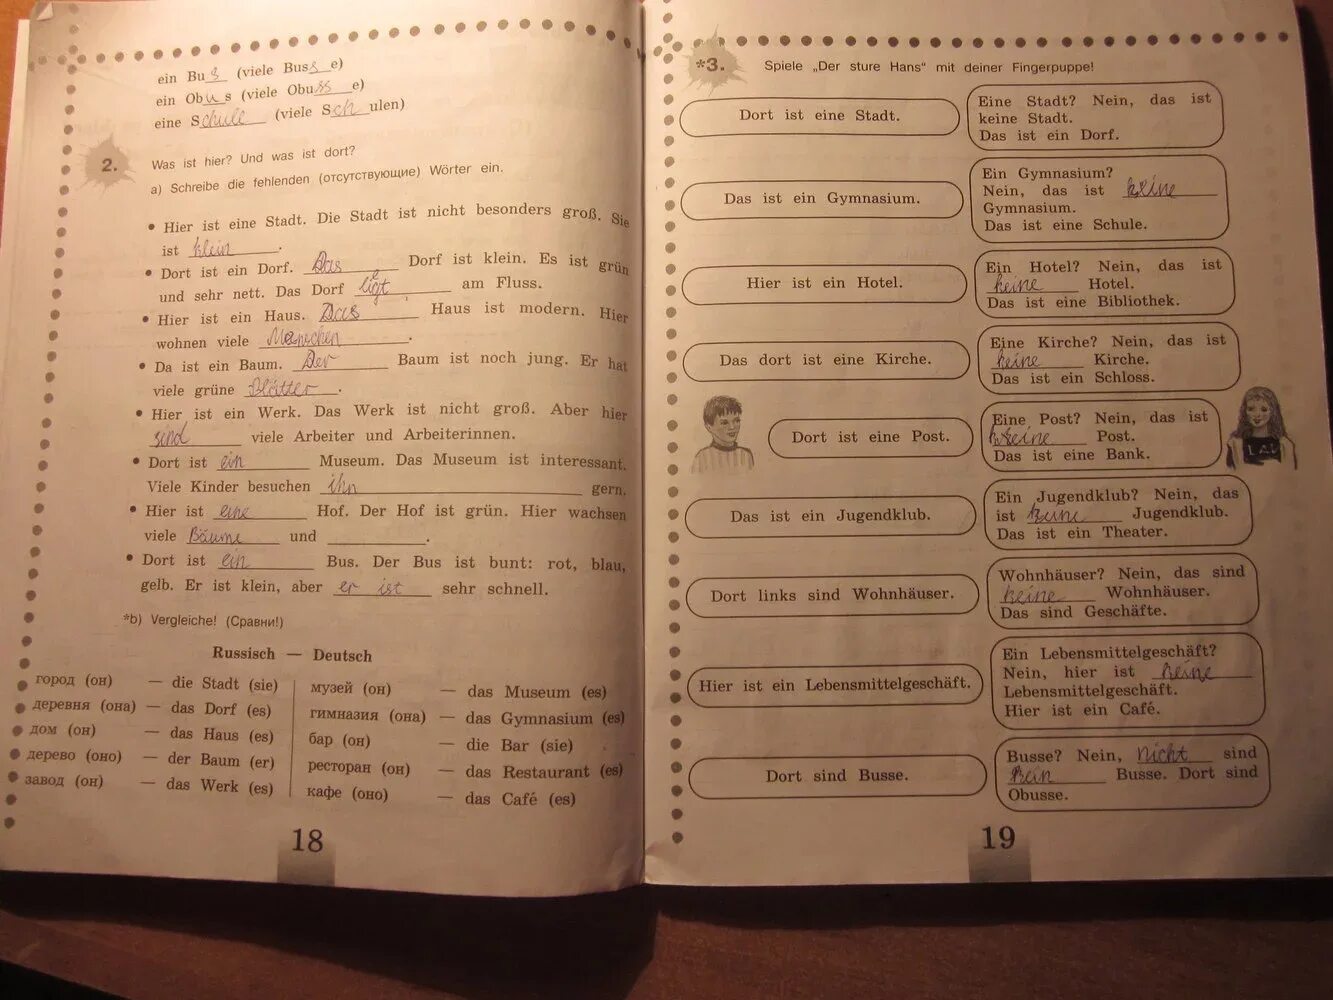 ein Bus (viele Busse)
ein Obus (viele Obusse)
eine Schule (viele Schulen)
2.
Was ist hier? Und was ist dort?
a) Schreibe die fehlenden (отсутствующие) Wörter ein.
• Hier ist eine Stadt. Die Stadt ist nicht besonders groß. Sie
ist klein.
• Dort ist ein Dorf. Das Dorf ist klein. Es ist grün
und sehr nett. Das Dorf liegt am Fluss.
• Hier ist ein Haus. Das Haus ist modern. Hier
wohnen viele Menschen.
• Da ist ein Baum. Der Baum ist noch jung. Er hat
viele grüne Blätter.
• Hier ist ein Werk. Das Werk ist nicht groß. Aber hier
sind viele Arbeiter und Arbeiterinnen.
• Dort ist ein Museum. Das Museum ist interessant.
Viele Kinder besuchen ihn gern.
• Hier ist eine Hof. Der Hof ist grün. Hier wachsen
viele Bäume und ______.
• Dort ist ein Bus. Der Bus ist bunt: rot, blau,
gelb. Er ist klein, aber er ist sehr schnell.
*b) Vergleiche! (Сравни!)
Russisch — Deutsch
город (он) — die Stadt (sie)
деревня (она) — das Dorf (es)
дом (он) — das Haus (es)
дерево (оно) — der Baum (er)
завод (он) — das Werk (es)
музей (он) — das Museum (es)
гимназия (она) — das Gymnasium (es)
бар (он) — die Bar (sie)
ресторан (он) — das Restaurant (es)
кафе (оно) — das Café (es)
18
*3.
Spiele „Der sture Hans“ mit deiner Fingerpuppe!
Dort ist eine Stadt.
Eine Stadt? Nein, das ist
keine Stadt.
Das ist ein Dorf.
Das ist ein Gymnasium.
Ein Gymnasium?
Nein, das ist keine
Gymnasium.
Das ist eine Schule.
Hier ist ein Hotel.
Ein Hotel? Nein, das ist
keine Hotel.
Das ist eine Bibliothek.
Das dort ist eine Kirche.
Eine Kirche? Nein, das ist
keine Kirche.
Das ist ein Schloss.
Dort ist eine Post.
Eine Post? Nein, das ist
keine Post.
Das ist eine Bank.
Das ist ein Jugendklub.
Ein Jugendklub? Nein, das
ist keine Jugendklub.
Das ist ein Theater.
Dort links sind Wohnhäuser.
Wohnhäuser? Nein, das sind
keine Wohnhäuser.
Das sind Geschäfte.
Hier ist ein Lebensmittelgeschäft.
Ein Lebensmittelgeschäft?
Nein, hier ist keine
Lebensmittelgeschäft.
Hier ist ein Café.
Dort sind Busse.
Busse? Nein, nicht sind
kein Busse. Dort sind
Obusse.
19